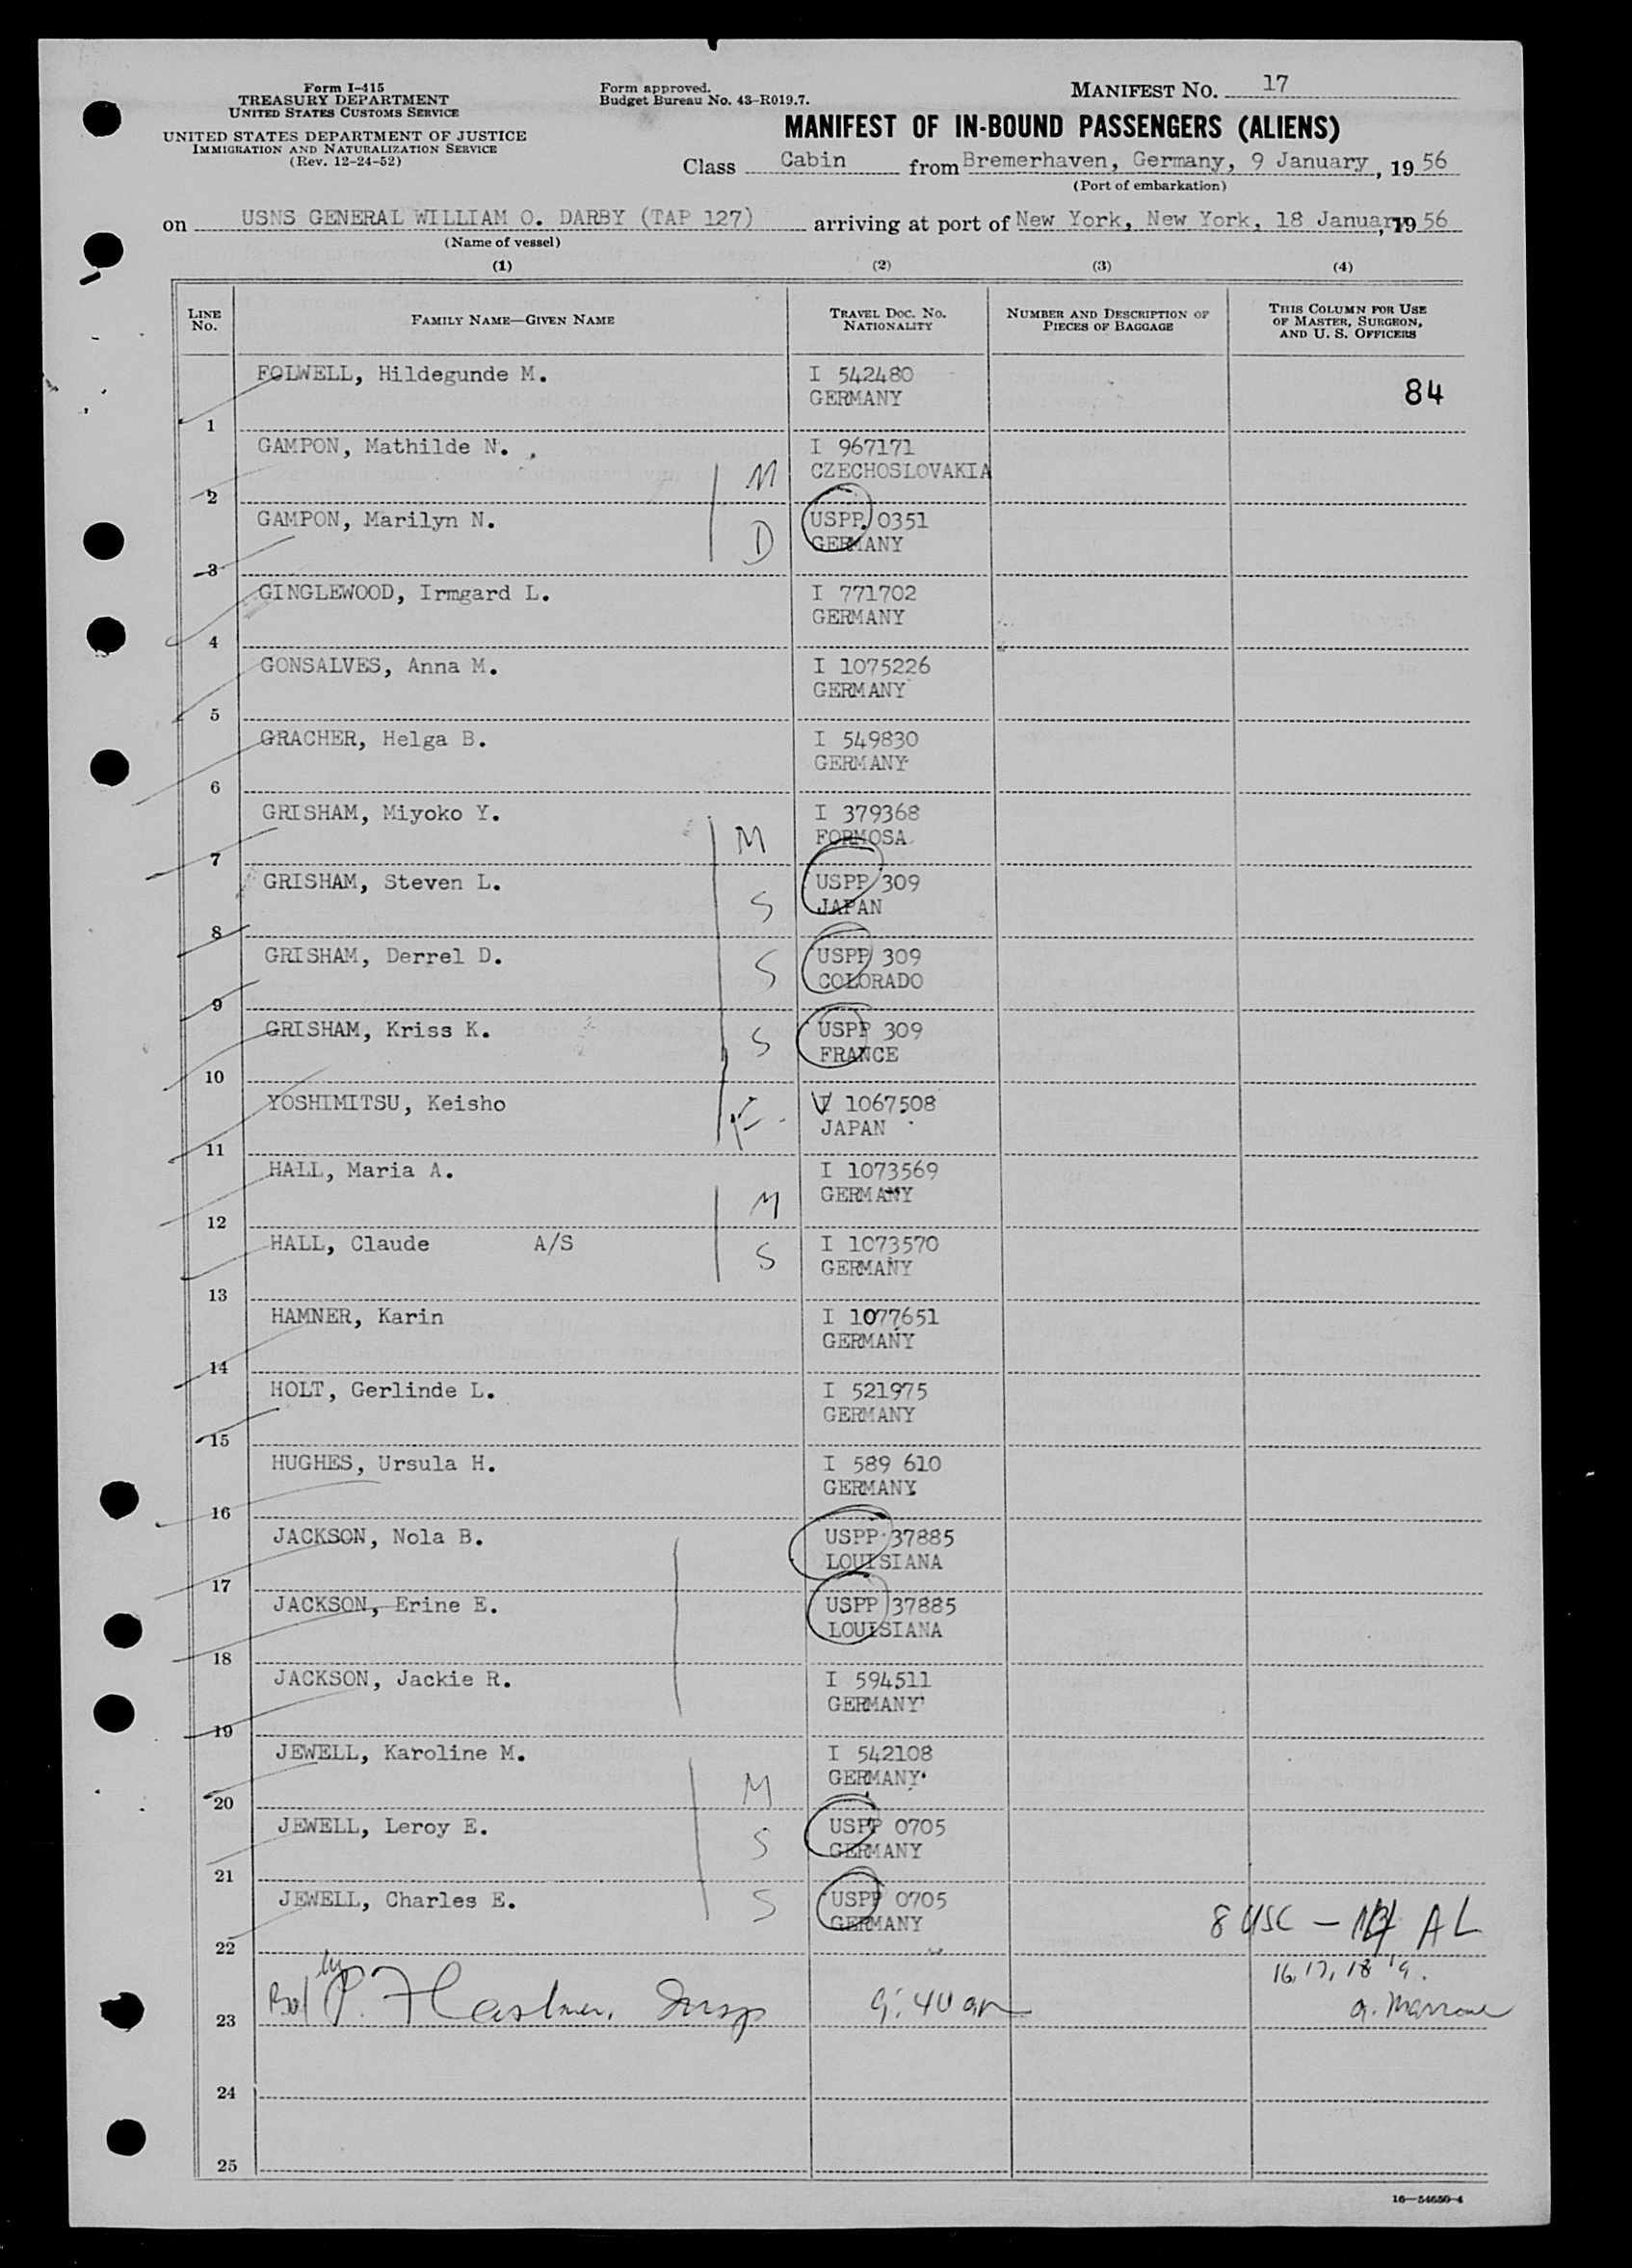 Form I-415
TREASURY DEPARTMENT
UNITED STATES CUSTOMS SERVICE
UNITED STATES DEPARTMENT OF JUSTICE
IMMIGRATION AND NATURALIZATION SERVICE
(Rev. 12-24-52)
Form approved.
Budget Bureau No. 43-R019.7.
MANIFEST NO. 17
MANIFEST OF IN-BOUND PASSENGERS (ALIENS)
Class Cabin from Bremerhaven, Germany, 9 January, 19 56
(Port of embarkation)
on USNS GENERAL WILLIAM O. DARBY (TAP 127) arriving at port of New York, New York, 18 January, 19 56
(Name of vessel)
(1) (2) (3) (4)
LINE NO. FAMILY NAME—GIVEN NAME TRAVEL DOC. NO. NATIONALITY NUMBER AND DESCRIPTION OF PIECES OF BAGGAGE THIS COLUMN FOR USE OF MASTER, SURGEON, AND U. S. OFFICERS
FOLWELL, Hildegunde M. I 542480
GERMANY 84
1
GAMPON, Mathilde N. I 967171
M CZECHOSLOVAKIA
2
GAMPON, Marilyn N. USPP 0351
D GERMANY
3
GINGLEWOOD, Irmgard L. I 771702
GERMANY
4
GONSALVES, Anna M. I 1075226
GERMANY
5
GRACHER, Helga B. I 549830
GERMANY
6
GRISHAM, Miyoko Y. I 379368
M FORMOSA
7
GRISHAM, Steven L. USPP 309
S JAPAN
8
GRISHAM, Derrel D. USPP 309
S COLORADO
9
GRISHAM, Kriss K. USPP 309
S FRANCE
10
YOSHIMITSU, Keisho V 1067508
JAPAN
11
HALL, Maria A. I 1073569
M GERMANY
12
HALL, Claude A/S I 1073570
S GERMANY
13
HAMNER, Karin I 1077651
GERMANY
14
HOLT, Gerlinde L. I 521975
GERMANY
15
HUGHES, Ursula H. I 589 610
GERMANY
16
JACKSON, Nola B. USPP 37885
LOUISIANA
17
JACKSON, Erine E. USPP 37885
LOUISIANA
18
JACKSON, Jackie R. I 594511
GERMANY
19
JEWELL, Karoline M. I 542108
M GERMANY
20
JEWELL, Leroy E. USPP 0705
S GERMANY
21
JEWELL, Charles E. USPP 0705
S GERMANY
8 USC – AL
22
16, 17, 18 19.
P. Insp 9:40 am
23
24
25
16—54650-4